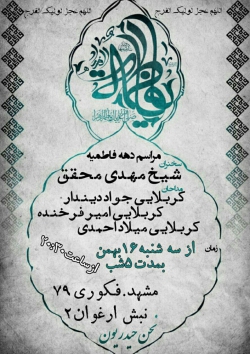 اللهم عجل لولیک الفرج
اللهم عجل لولیک الفرج
یا فاطمة
مراسم دهه فاطمیه
سخنران
شیخ مهدی محقق
مداحان
کربلایی جواد دیندار
کربلایی امیر فرخنده
کربلایی میلاد احمدی
زمان
از سه شنبه ۱۶ بهمن
بمدت ۵ شب
از ساعت ۲۰:۳۰
مشهد. فکوری ۷۹
نبش ارغوان ۲
نحن حیدریون